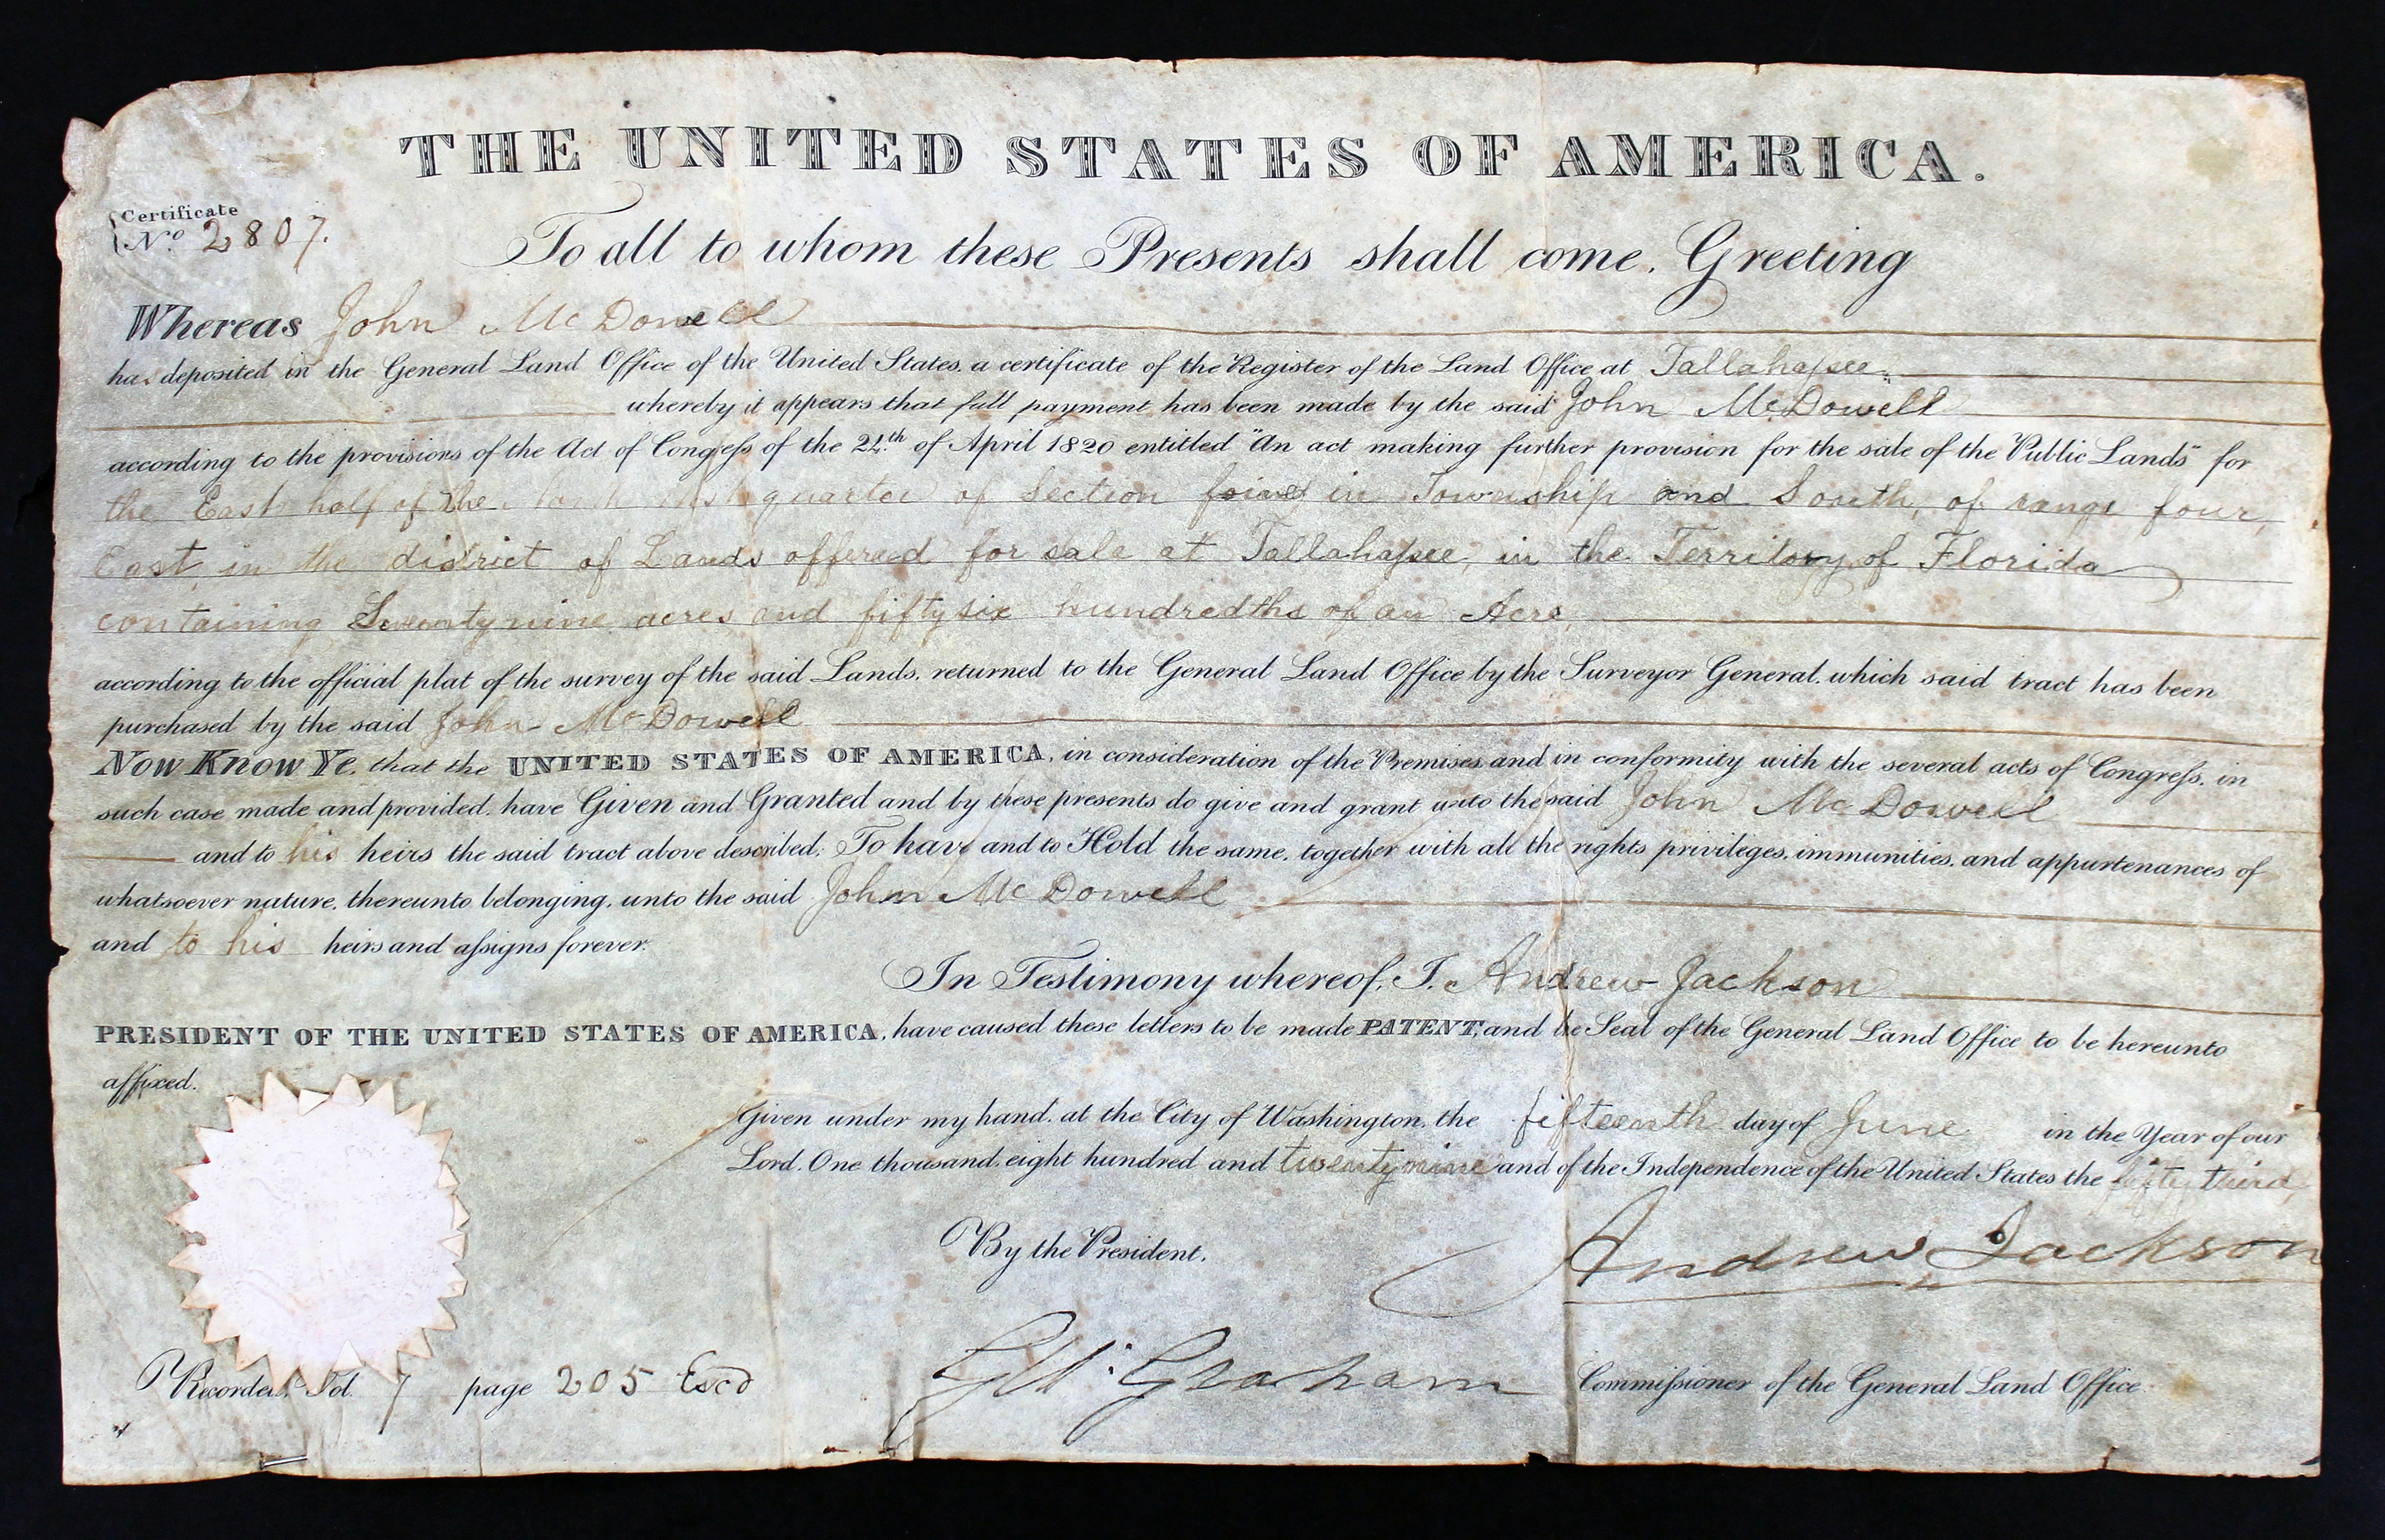 THE UNITED STATES OF AMERICA.
Certificate
No. 2807.
To all to whom these Presents shall come, Greeting
Whereas John McDowell
has deposited in the General Land Office of the United States, a certificate of the Register of the Land Office at Tallahassee
whereby it appears that full payment has been made by the said John McDowell
according to the provisions of the Act of Congress of the 24th of April 1820 entitled "An act making further provision for the sale of the Public Lands" for
the East half of the quarter of Section in Township and South, of range four,
East, in the district of Lands offered for sale at Tallahassee, in the Territory of Florida
containing Seventy nine acres and fifty six hundredths of an Acre,
according to the official plat of the survey of the said Lands, returned to the General Land Office by the Surveyor General, which said tract has been
purchased by the said John McDowell
Now Know Ye, that the UNITED STATES OF AMERICA, in consideration of the Premises, and in conformity with the several acts of Congress, in
such case made and provided, have Given and Granted and by these presents do give and grant unto the said John McDowell
and to his heirs the said tract above described; To have and to Hold the same, together with all the rights privileges, immunities, and appurtenances of
whatsoever nature, thereunto belonging, unto the said John McDowell
and to his heirs and assigns forever.
In Testimony whereof, I, Andrew Jackson
PRESIDENT OF THE UNITED STATES OF AMERICA, have caused these letters to be made PATENT, and the Seal of the General Land Office to be hereunto
affixed.
Given under my hand, at the City of Washington, the fifteenth day of June in the Year of our
Lord, One thousand, eight hundred and twenty nine and of the Independence of the United States the fifty third,
Andrew Jackson
By the President,
Graham Commissioner of the General Land Office
Recorded, Vol. 7 page 205